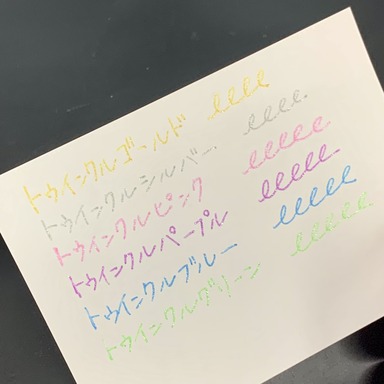 トゥインクルゴールド
トゥインクルシルバー
トゥインクルピンク
トゥインクルパープル
トゥインクルブルー
トゥインクルグリーン